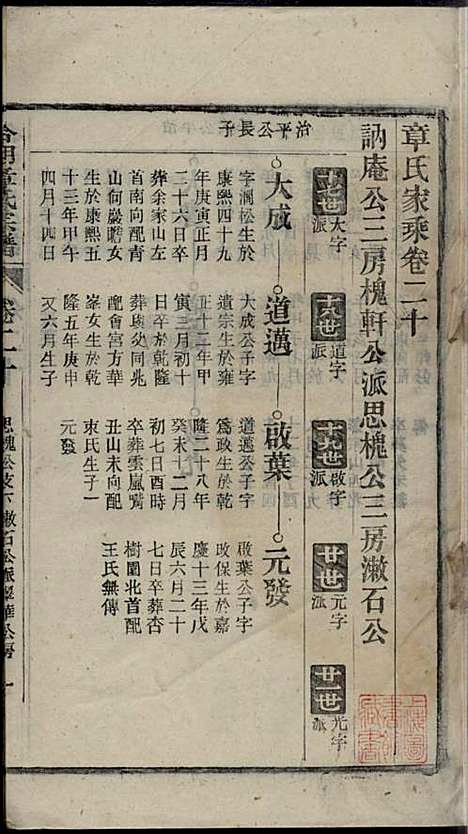 章氏家乘卷二十
訥庵公三房槐軒公派思槐公三房漱石公
十七世 大字派
十八世 道字派
十九世 啟字派
廿世 元字派
廿一世 光字派
治平公長子
大成
道邁
啟葉
元發
字澗松生於
康熙四十九
年庚寅正月
二十六日卒
葬余家山左
首南向配青
山何巖瞻女
生於康熙五
十三年甲午
四月十四日
大成公子字
道宗生於雍
正十二年甲
寅三月初十
日卒於乾隆
葬與父同兆
配會宮方華
峯女生於乾
隆五年庚申
又六月生子
道邁公子字
為政生於乾
隆二十八年
癸未十二月
初七日酉時
卒葬雲嵐嶺
丑山未向配
朿氏生子一
元發
啟葉公子字
改保生於嘉
慶十三年戊
辰六月二十
七日卒葬杏
樹園北首配
王氏無傳
章氏宗譜
卷二十
思槐公支下漱石公派
一